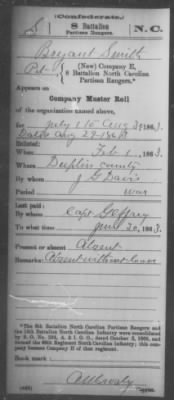 (Confederate.)
S 8 Battalion N.C.
Partisan Rangers.
Bryant Smith
Pvt., (New) Company E,
8 Battalion North Carolina
Partisan Rangers.*
Appears on
Company Muster Roll
of the organization named above,
for July 1 to Aug 31, 1863.
Dated Aug 29 1863
Enlisted:
When Feb 1, 1863.
Where Duplin county
By whom J G Davis
Period war
Last paid:
By whom Capt Jeffrey
To what time June 30, 1863.
Present or absent Absent
Remarks: Absent without leave
*The 8th Battalion North Carolina Partisan Rangers and
the 13th Battalion North Carolina Infantry were consolidated
by S. O. No. 236, A. & I. G. O., dated October 2, 1863, and
formed the 66th Regiment North Carolina Infantry; this com-
pany became Company D of that regiment.
Book mark:
(642) Copyist.